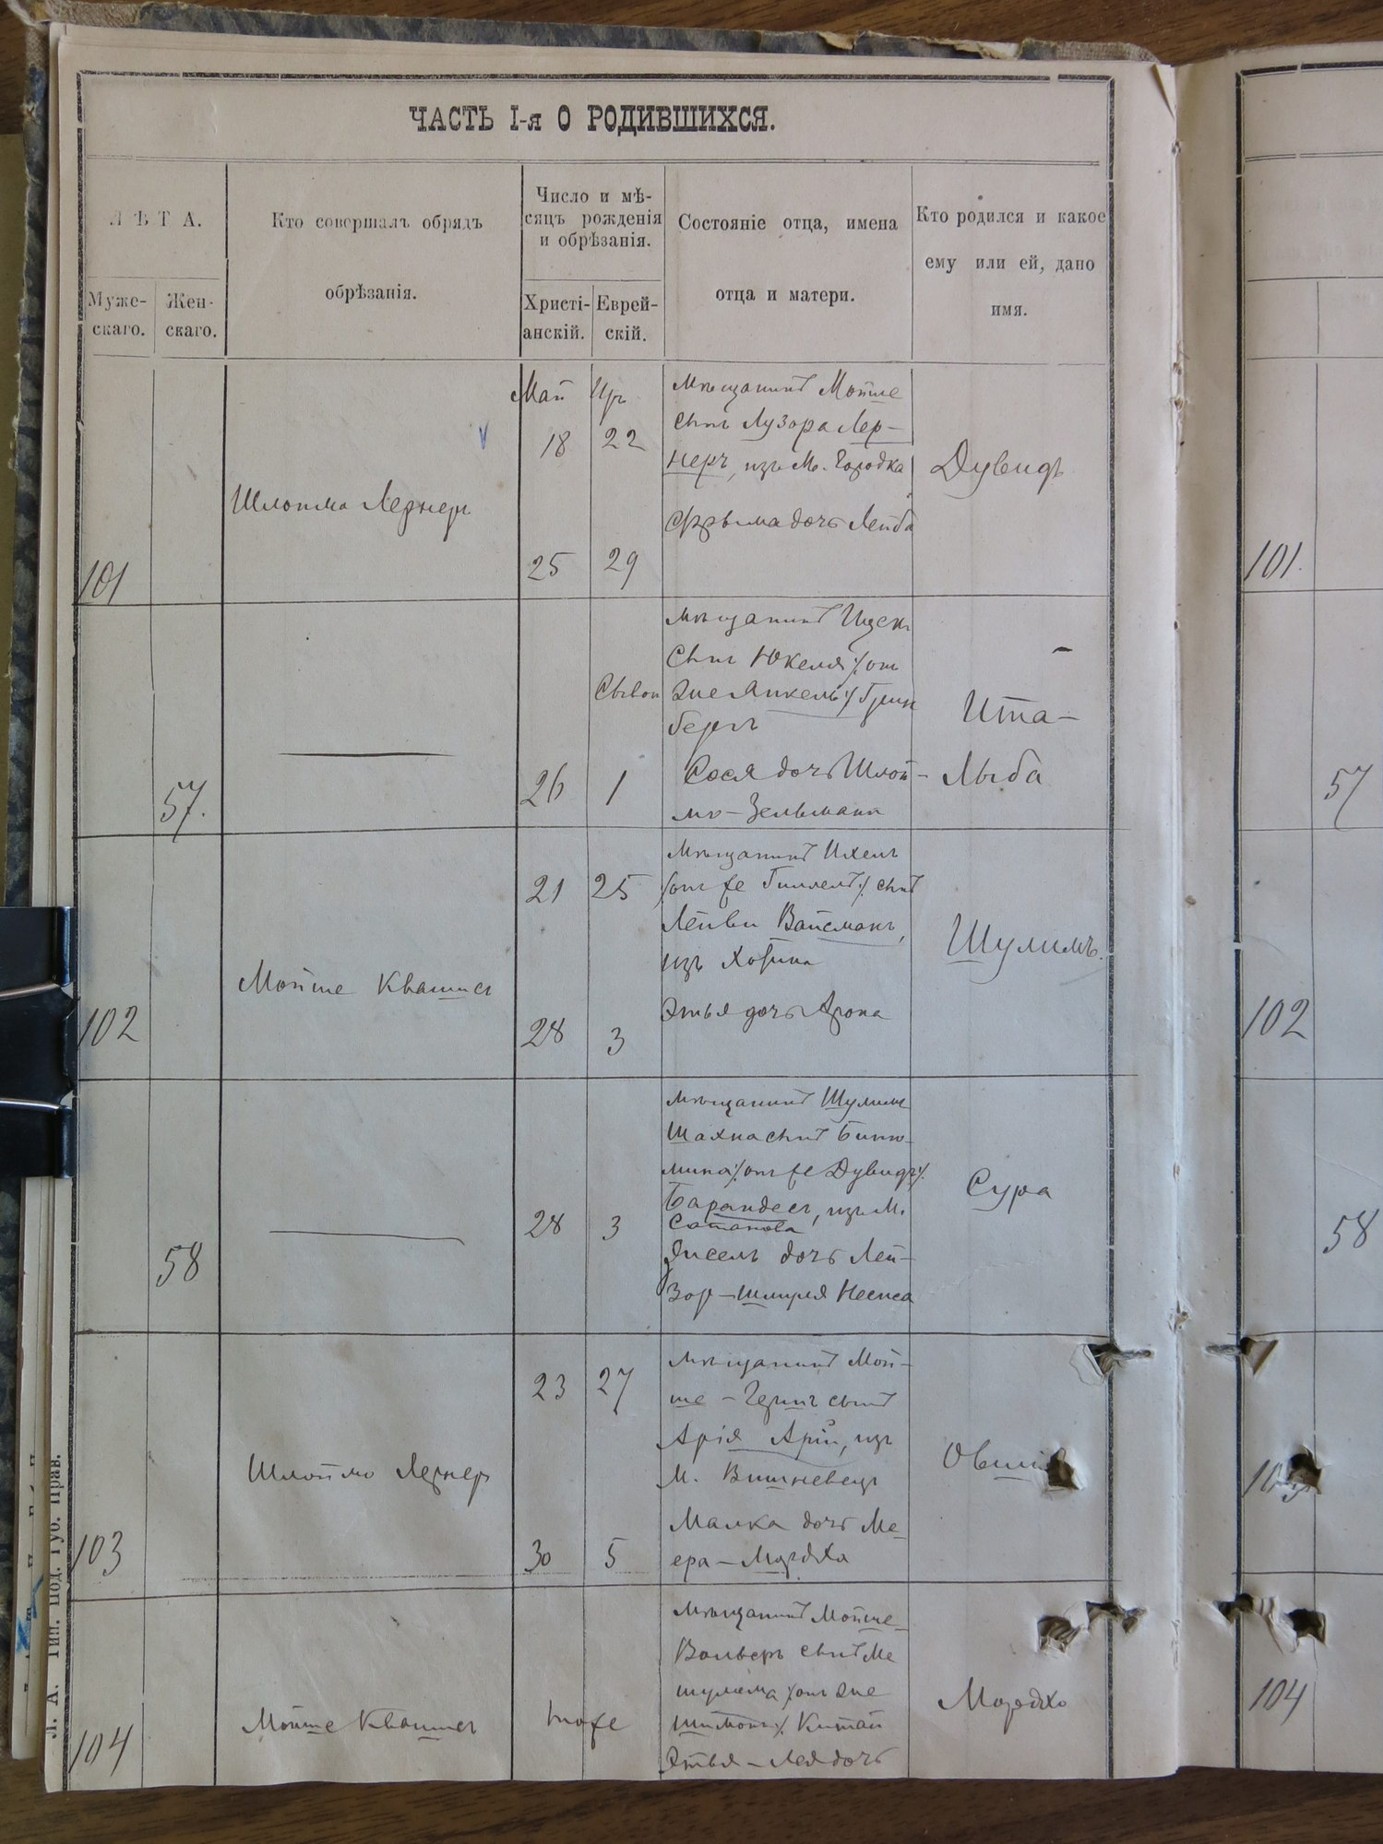 ЧАСТЬ I-я О РОДИВШИХСЯ.
ЛѢТА.
Муже-
скаго.
Жен-
скаго.
Кто совершалъ обрядъ
обрѣзанія.
Число и мѣ-
сяцъ рожденія
и обрѣзанія.
Христі-
анскій.
Еврей-
скій.
Состояніе отца, имена
отца и матери.
Кто родился и какое
ему или ей, дано
имя.
101
Шлойма Лернеръ
Май
18
25
Іръ
22
29
мѣщанинъ Мойше
сынъ Лузора Лер-
неръ, изъ м. Городка
Фрыма дочь Лейба
Дувидъ
101.
57.
26
Сывон
1
мѣщанинъ Ицекъ
сынъ Юкеля /: он
же Янкель :/ Грин
бергъ
Сося дочь Шлой-
мо-Зельмана
Ита-
Лыба
57
102
Мойше Квашис
21
28
25
3
мѣщанинъ Ихель
/: онъ же Гиллель :/ сынъ
Лейви Вайсманъ,
изъ Хотина
Этья дочь Арона
Шулимъ.
102
58
28
3
мѣщанинъ Шулим
Шахна сынъ Бинь-
мина /: он же Дувидъ :/
Барандесъ, изъ м.
Сатанова
Эйсель дочь Лей-
зор-Шмуля
Сура
58
103
Шлоймо Лернеръ
23
30
27
5
мѣщанинъ Мой-
ше-Гершъ сынъ
Арія Арій, изъ
м. Вишневецъ
Малка дочь Ме-
ера-Мордха
Овши
104
Мойше Квашис
тоже
мѣщанинъ Мойше-
Вольверъ сынъ Ме
шулема /: онъ же
Шимонъ :/ Китай
Этья-Лея дочь
Мордхо
104
Л. А. Тип. Под. Губ. Прав.